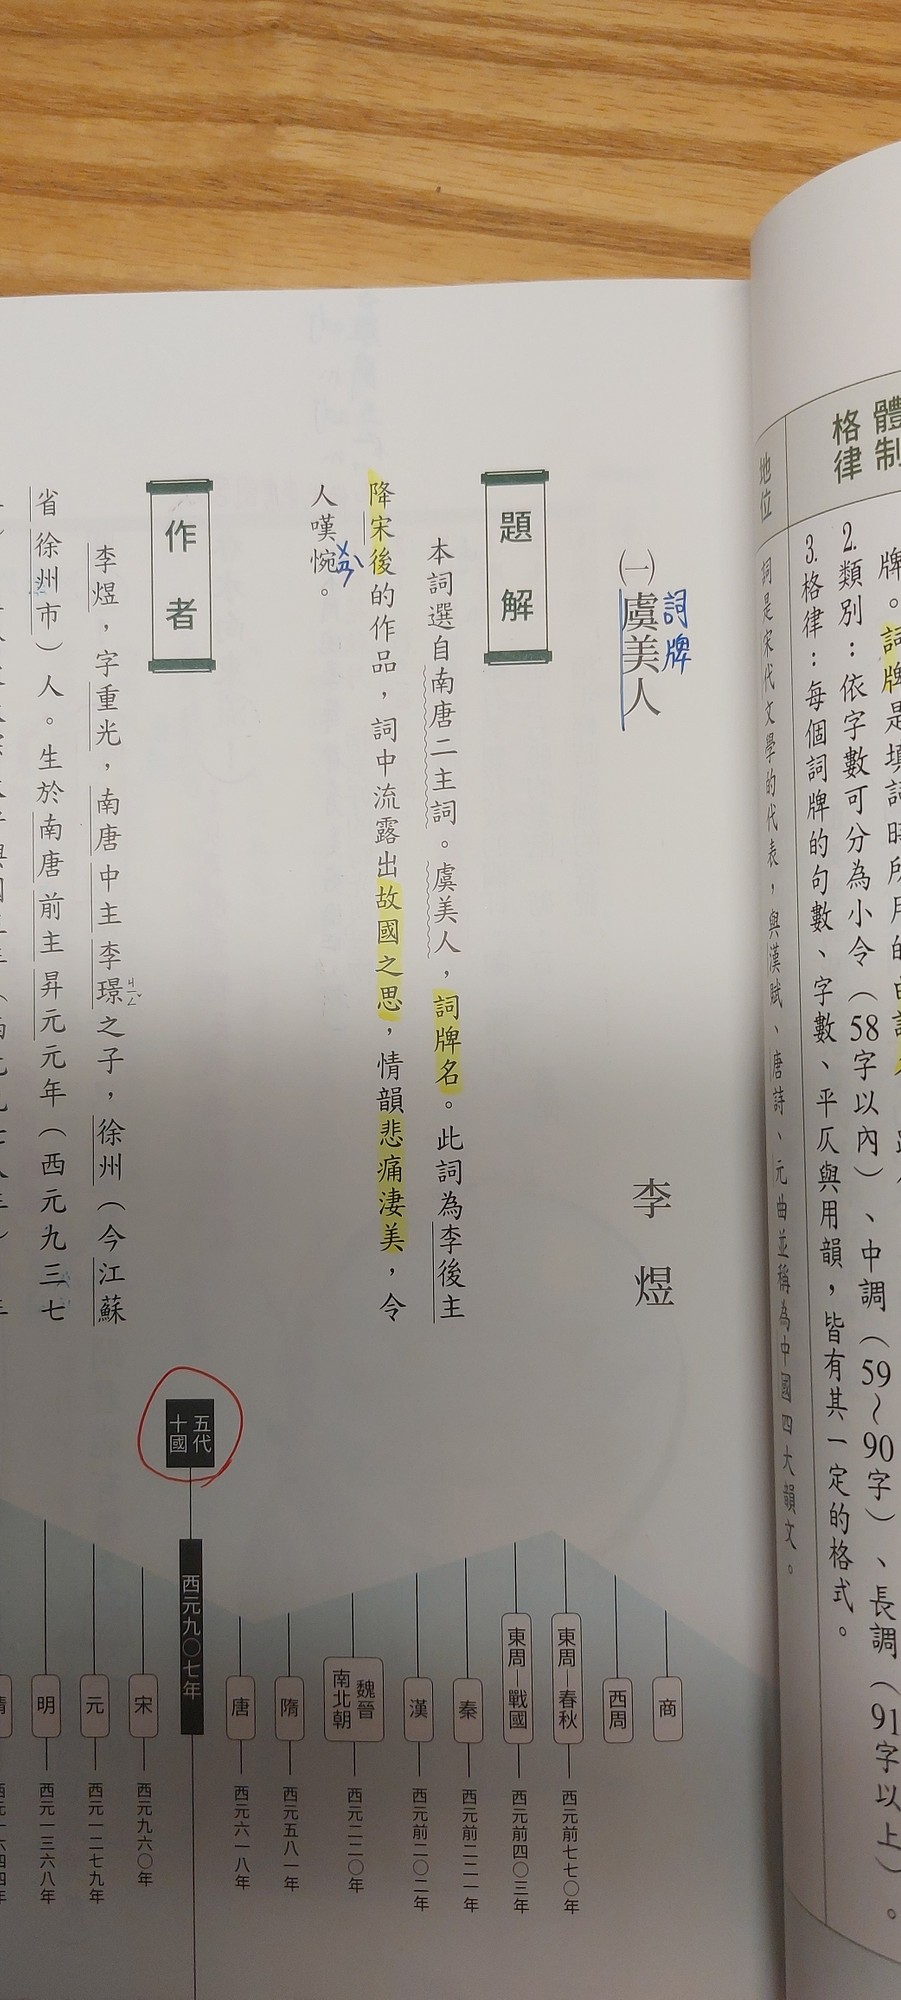 體制
格律
牌。詞牌是填詞時所用的曲調名
2.類別：依字數可分為小令（58字以內）、中調（59～90字）、長調（91字以上）。
3.格律：每個詞牌的句數、字數、平仄與用韻，皆有其一定的格式。
地位
詞是宋代文學的代表，與漢賦、唐詩、元曲並稱為中國四大韻文。
詞牌
㈠虞美人
李煜
題解
本詞選自南唐二主詞。虞美人，詞牌名。此詞為李後主
降宋後的作品，詞中流露出故國之思，情韻悲痛淒美，令
人嘆惋。
ㄨㄢˋ
作者
李煜，字重光，南唐中主李璟之子，徐州（今江蘇
ㄐㄧㄥˇ
省徐州市）人。生於南唐前主昇元元年（西元九三七
商
西周
東周 春秋
西元前七七〇年
東周 戰國
西元前四〇三年
秦
西元前二二一年
漢
西元前二〇二年
魏晉
南北朝
西元二二〇年
隋
西元五八一年
唐
西元六一八年
五代
十國
西元九〇七年
宋
西元九六〇年
元
西元一二七九年
明
西元一三六八年
清
西元一六四四年